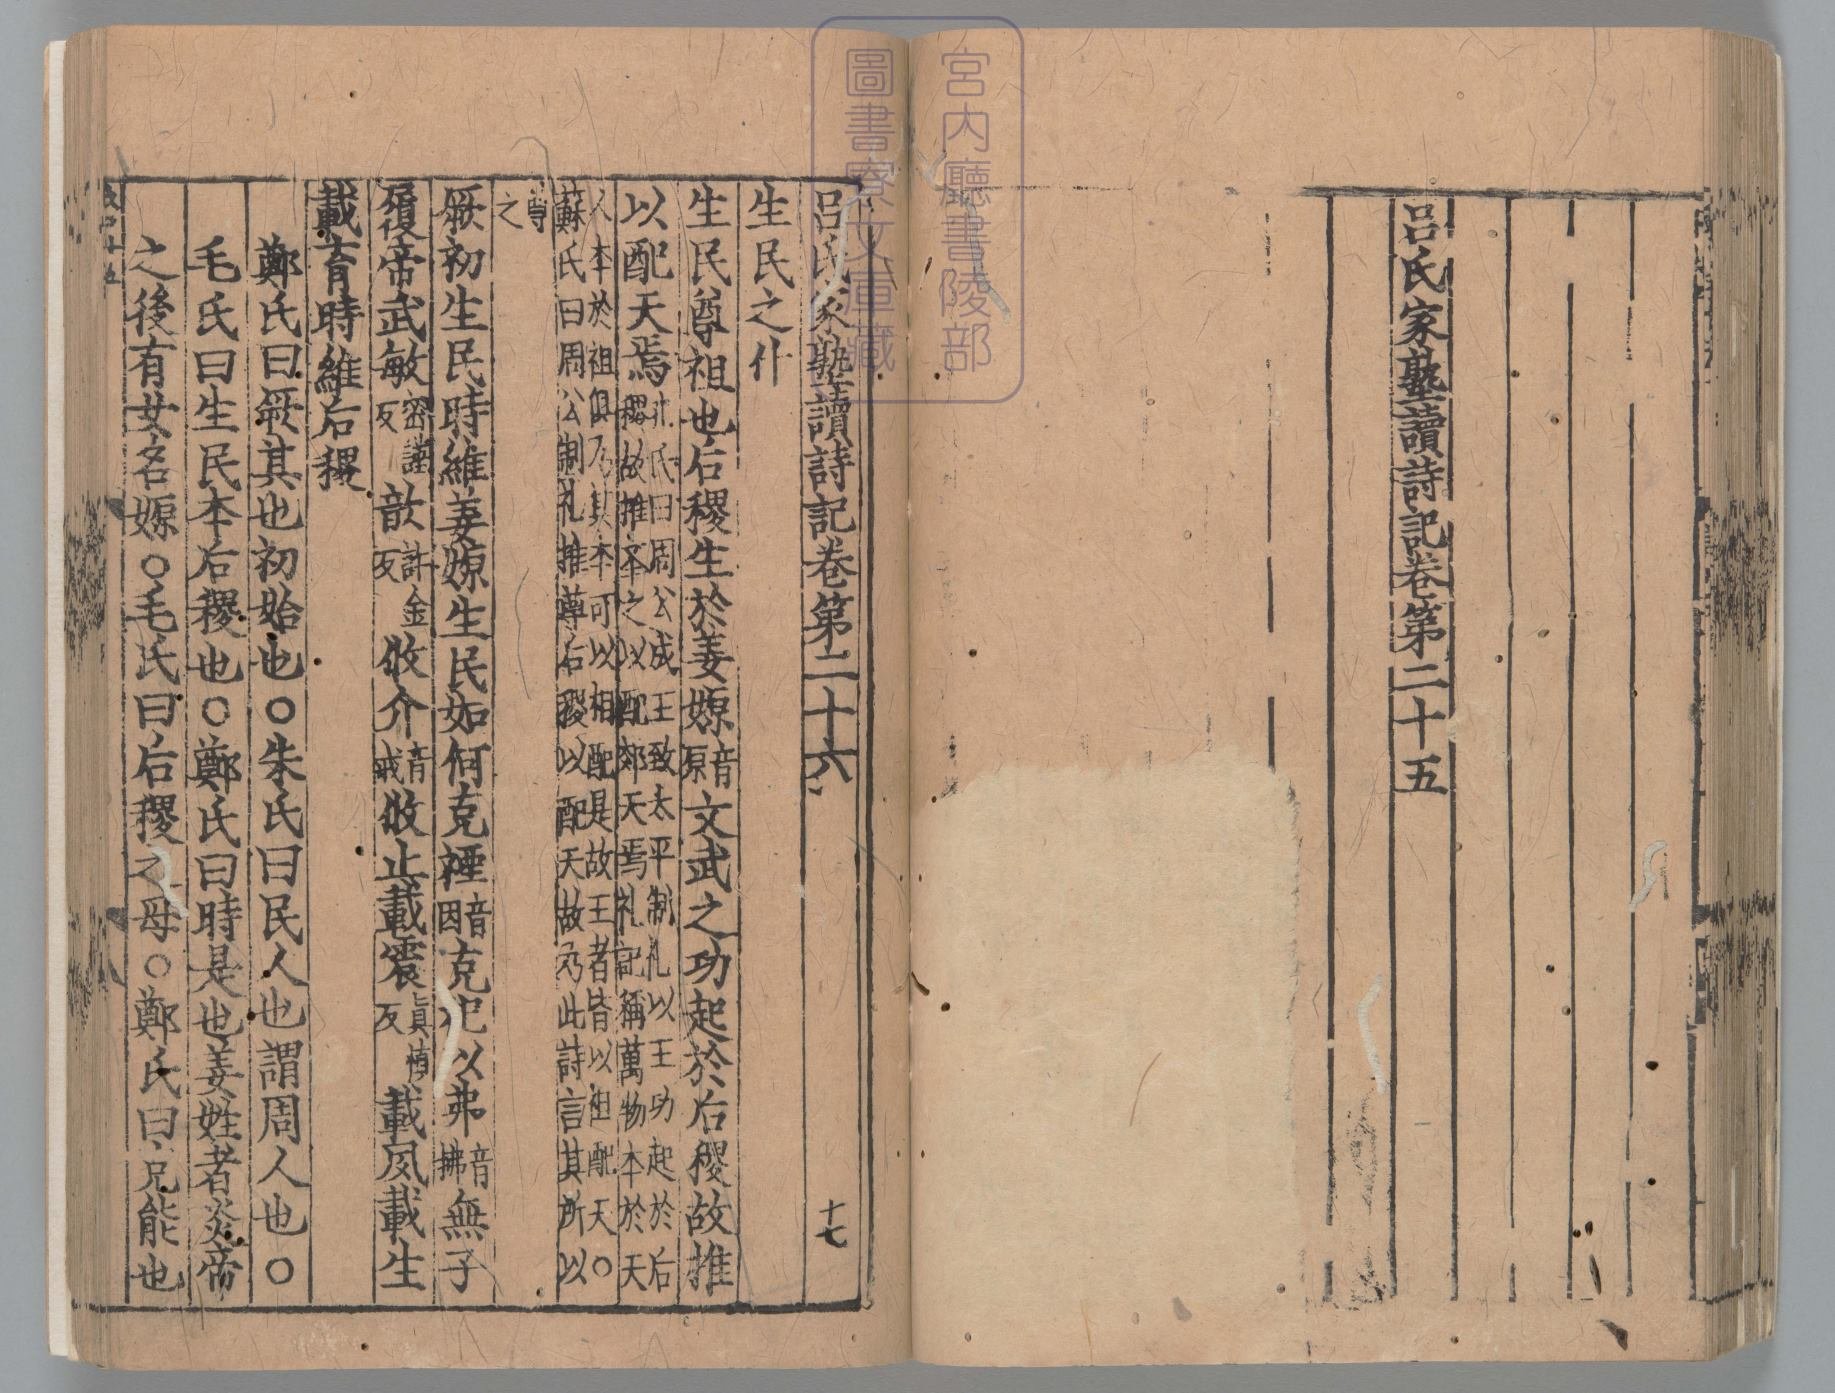 宮內廳書陵部
圖書寮文庫藏
呂氏家塾讀詩記卷第二十五
呂氏家塾讀詩記卷第二十六 十七
生民之什
生民尊祖也后稷生於姜嫄音原文武之功起於后稷故推
以配天焉孔氏曰周公成王致太平制礼以王功起於后
稷故推本之以配郊天焉礼記稱萬物本於天
人本於祖俱乃其本可以相配是故王者皆以祖配天○
蘇氏曰周公制礼推尊后稷以配天故乃此詩言其所以
尊
之
厥初生民時維姜嫄生民如何克禋音因克祀以弗音拂無子
履帝武敏密謹反歆許金反攸介音戒攸止載震真慎反載夙載生
載育時維后稷
鄭氏曰厥其也初始也○朱氏曰民人也謂周人也○
毛氏曰生民本后稷也○鄭氏曰時是也姜姓者炎帝
之後有女名嫄○毛氏曰后稷之母○鄭氏曰克能也